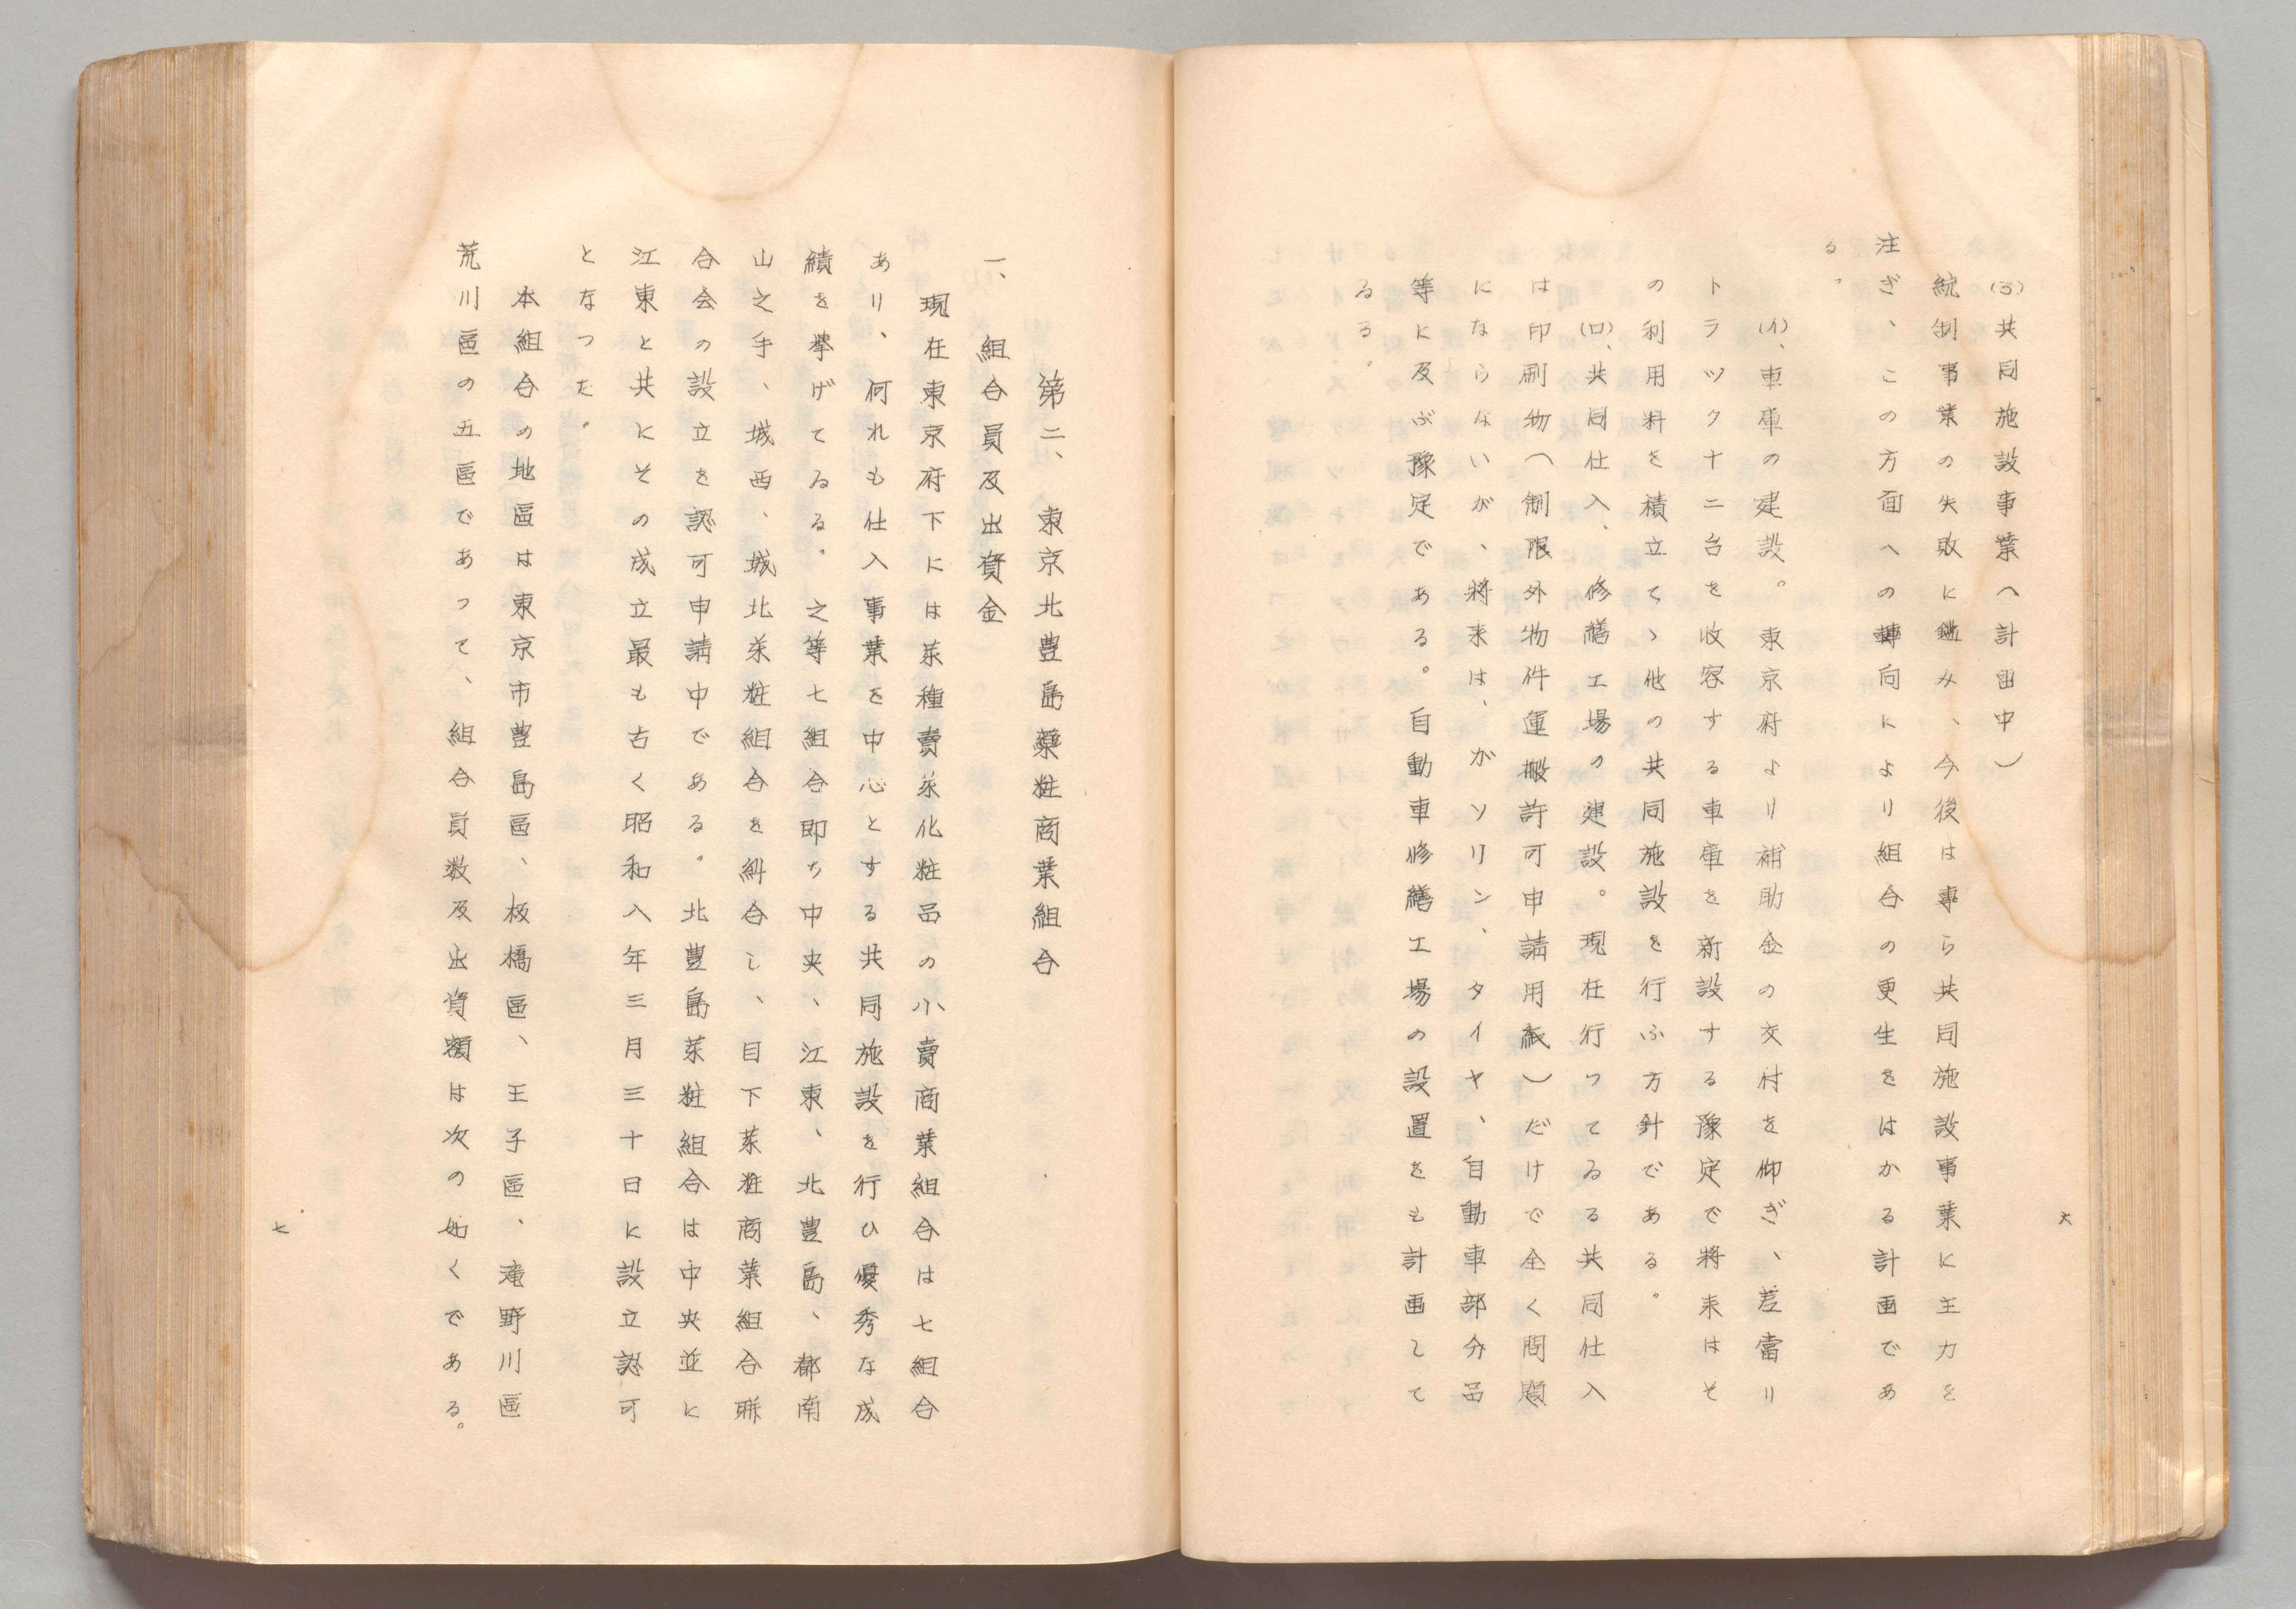 六
(3)共同施設事業(計画中)
統制事業の失敗に鑑み、今後は専ら共同施設事業に主力を
注ぎ、この方面への轉向により組合の更生をはかる計画であ
る。
(イ)、車庫の建設。東京府より補助金の交付を仰ぎ、差當り
トラツク十二台を收容する車庫を新設する豫定で將来はそ
の利用料を積立てゝ他の共同施設を行ふ方針である。
(ロ)、共同仕入、修繕工場の建設。現在行つてゐる共同仕入
は印刷物(制限外物件運搬許可申請用紙)だけで全く問題
にならないが、將来は、ガソリン、タイヤ、自動車部分品
等に及ぶ豫定である。自動車修繕工場の設置をも計画して
ゐる。
第二、東京北豊島藥粧商業組合
一、組合員及出資金
現在東京府下には薬種賣薬化粧品の小賣商業組合は七組合
あり、何れも仕入事業を中心とする共同施設を行ひ優秀な成
績を挙げてゐる。之等七組合即ち中央、江東、北豊島、都南
山之手、城西、城北薬粧組合を糾合し、目下薬粧商業組合聯
合会の設立を認可申請中である。北豊島薬粧組合は中央並に
江東と共にその成立最も古く昭和八年三月三十日に設立認可
となつた。
本組合の地區は東京市豊島區、板橋區、王子區、滝野川區
荒川區の五區であつて、組合員数及出資額は次の如くである。
七